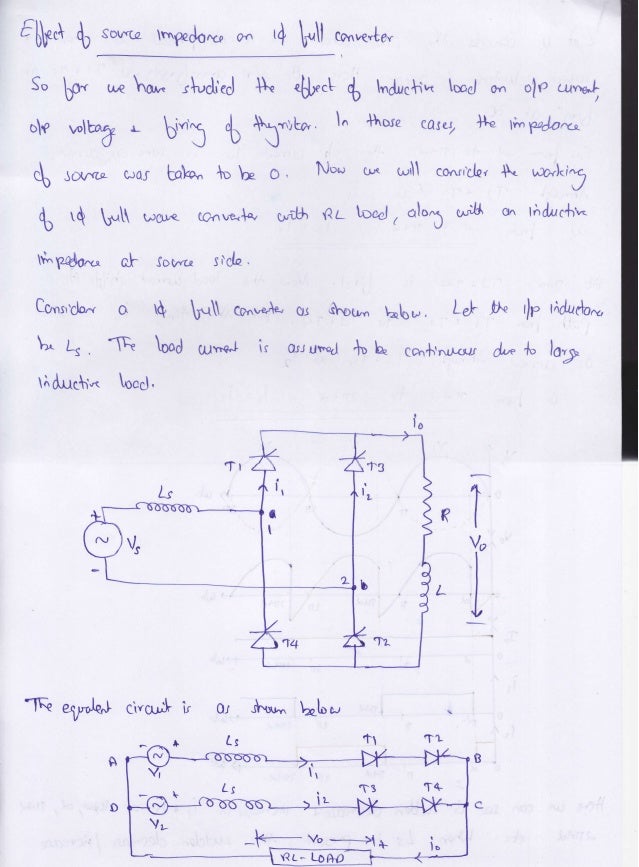 Effect of source impedance on 1ϕ full converter
So far we have studied the effect of Inductive load on o/p current,
o/p voltage & firing of thyristor. In those cases, the impedance
of source was taken to be 0. Now we will consider the working
of 1ϕ full wave converter with RL load, along with an inductive
impedance at source side.
Consider a 1ϕ full converter as shown below. Let the i/p inductance
be Ls. The load current is assumed to be continuous due to large
inductive load.
io
T1 T3
i1 i2
Ls
a
1
R
+
Vs
Vo
-
2 b
L
T4 T2
The equvalent circuit is as shown below
Ls T1 T2
A - + B
V1 i1
Ls T3 T4
D - + i2 C
V2
- Vo + io
RL-LOAD